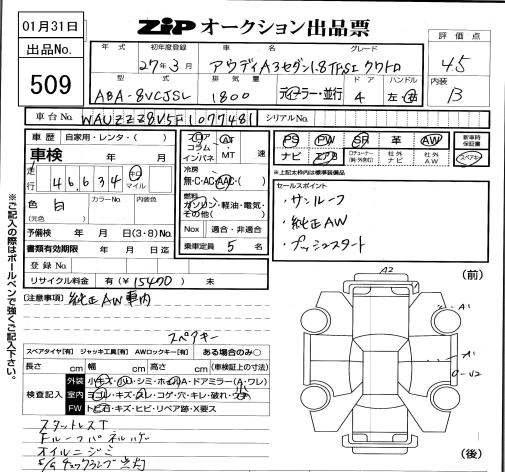 01月31日
出品No.
509
ZIP オークション出品票
評価点
4.5
内装
B
年式
初年度登録
車名
グレード
27年3月
アウディA3セダン1.8TFSI クワトロ
型式
排気量
ドア
ハンドル
ABA-8VCJSL
1800
ディーラー・並行
4
左・右
車台No.
WAUZZZ8V5F1077481
シリアルNo.
車歴
自家用・レンタ・( )
車検
年 月
走行
46,634
キロ
マイル
色
白
(元色)
カラーNo.
内装色
予備検 年 月 日(3・8)No.
書類有効期限 年 月 日迄
登録No.
リサイクル料金 有(¥15470) 未
フロア
コラム
インパネ
AT
MT
速
冷房
無・C・AC・AAC・( )
燃料
ガソリン・軽油・電気・
その他( )
Nox
適合・非適合
乗車定員 5 名
PS
PW
SR
革
AW
ナビ
エアB
社外
ナビ
社外
AW
新車時
保証書
スペアキー
※上記太枠内は標準装備品
セールスポイント
・サンルーフ
・純正AW
・プッシュスタート
[注意事項] 純正AW車内
スペアキー
スペアタイヤ[有] ジャッキ工具[有] AWロックキー[有] ある場合のみ○
長さ cm 幅 cm 高さ cm (車検証上の寸法)
検査記入
外装
小キズ・小凹・シミ・ホイルA・ドアミラー(A・ワレ)
室内
ヨゴレ・キズ・スレ・コゲ・穴・キレ・破れ・
FW
トビ石・キズ・ヒビ・リペア跡・X要ス
スタットレスT
Fルーフパネルハゲ
オイルニジミ
E/Gチェックランプ点灯
※ご記入の際はボールペンで強くご記入下さい。
(前)
A2
A1
A1
(後)